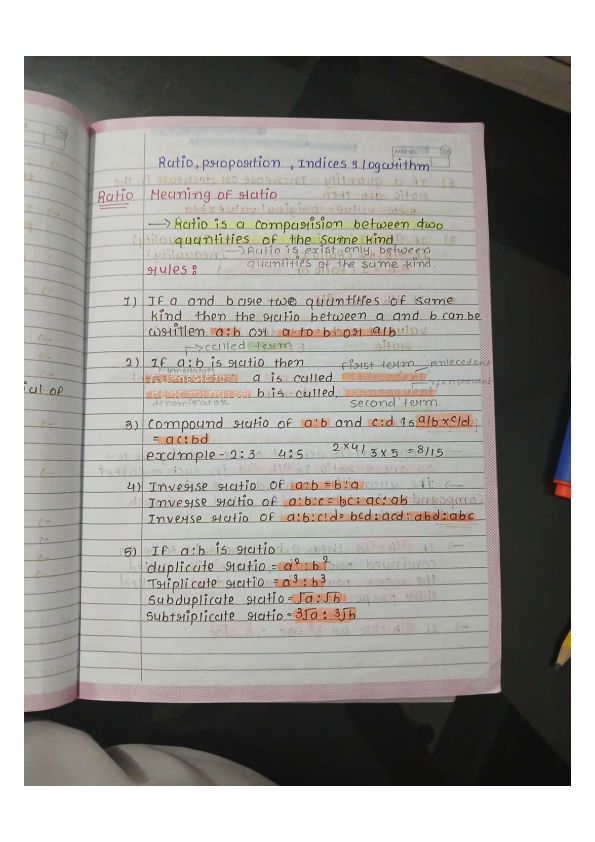 PAGE NO.
Ratio, proportion, Indices & logarithm
Ratio Meaning of ratio
→ Ratio is a comparision between two
quantities of the same kind
→ Ratio is exist only between
quantities of the same kind.
rules:
1) If a and b are two quantities of same
kind then the ratio between a and b can be
written a:b or a to b or a/b
→ called term
2) If a:b is ratio then first term antecedent
Numerator a is called
b is called, consequent
denominator second term.
3) Compound ratio of a:b and c:d is a/b × c/d
= ac:bd
example - 2:3 4:5 2×4/3×5 = 8/15
4) Inverse ratio of a:b = b:a
Inverse ratio of a:b:c = bc:ac:ab
Inverse ratio of a:b:c:d = bcd:acd:abd:abc
5) If a:b is ratio
duplicate ratio = a²:b²
Triplicate ratio = a³:b³
Subduplicate ratio = √a:√b
Subtriplicate ratio = 3√a : 3√b
ial of